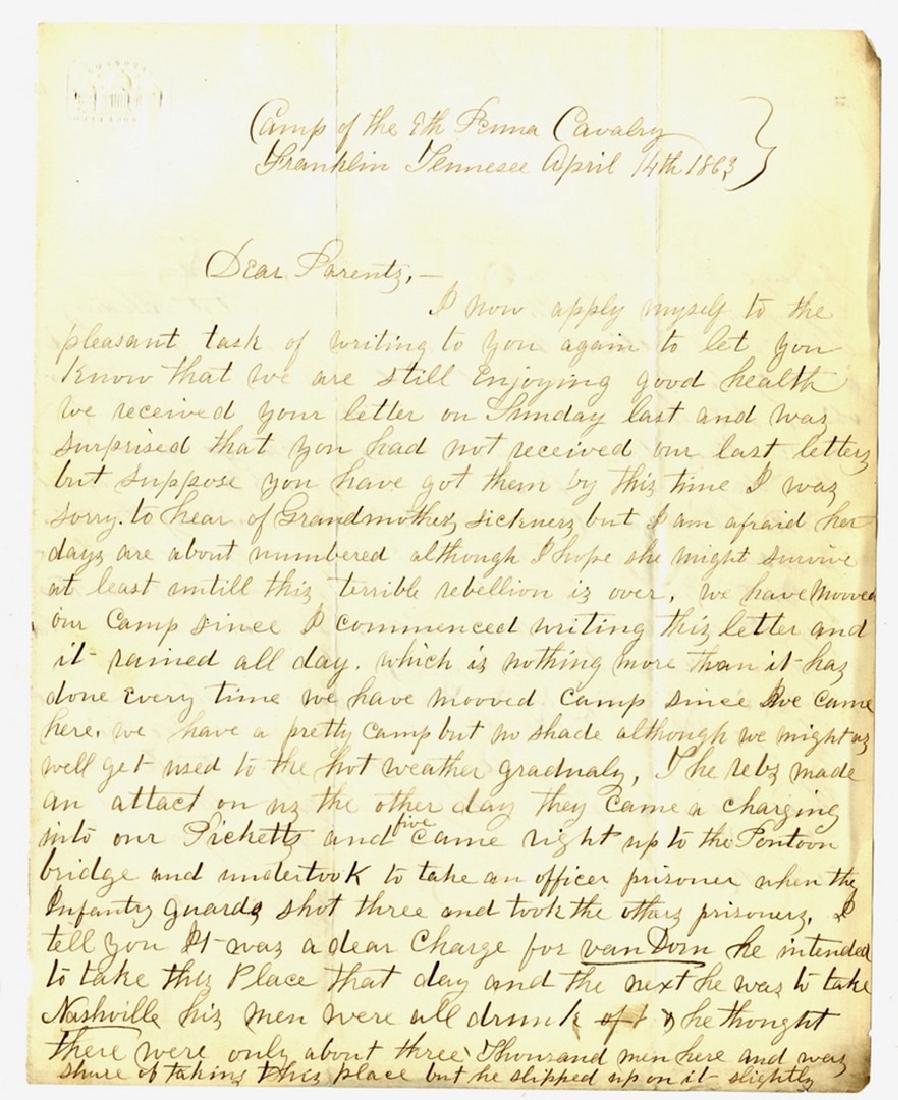 Camp of the 9th Penna Cavalry
Franklin Tennesee April 14th 1863
Dear Parents,—
I now apply myself to the
pleasant task of writing to you again to let you
know that we are still enjoying good health
we received your letter on Sunday last and was
surprised that you had not received our last letters
but suppose you have got them by this time I was
sorry. to hear of Grandmothers sickness but I am afraid her
days are about numbered although I hope she might survive
at least untill this terrible rebellion is over, we have mooved
our Camp since I commenced writing this letter and
it rained all day. which is nothing more than it has
done every time we have mooved camp since we came
here. we have a pretty camp but no shade although we might as
well get used to the hot weather gradualy, The rebs made
an attact on us the other day they came a charging
into our Picketts and five came right up to the Pontoon
bridge and undertook to take an officer prisoner when the
Infantry guards shot three and took the others prisoners, I
tell you It was a dear Charge for van Dorn he intended
to take this Place that day and the next he was to take
Nashville his men were all drunk he thought
there were only about three Thousand men here and was
shure of taking this place but he slipped up on it slightly